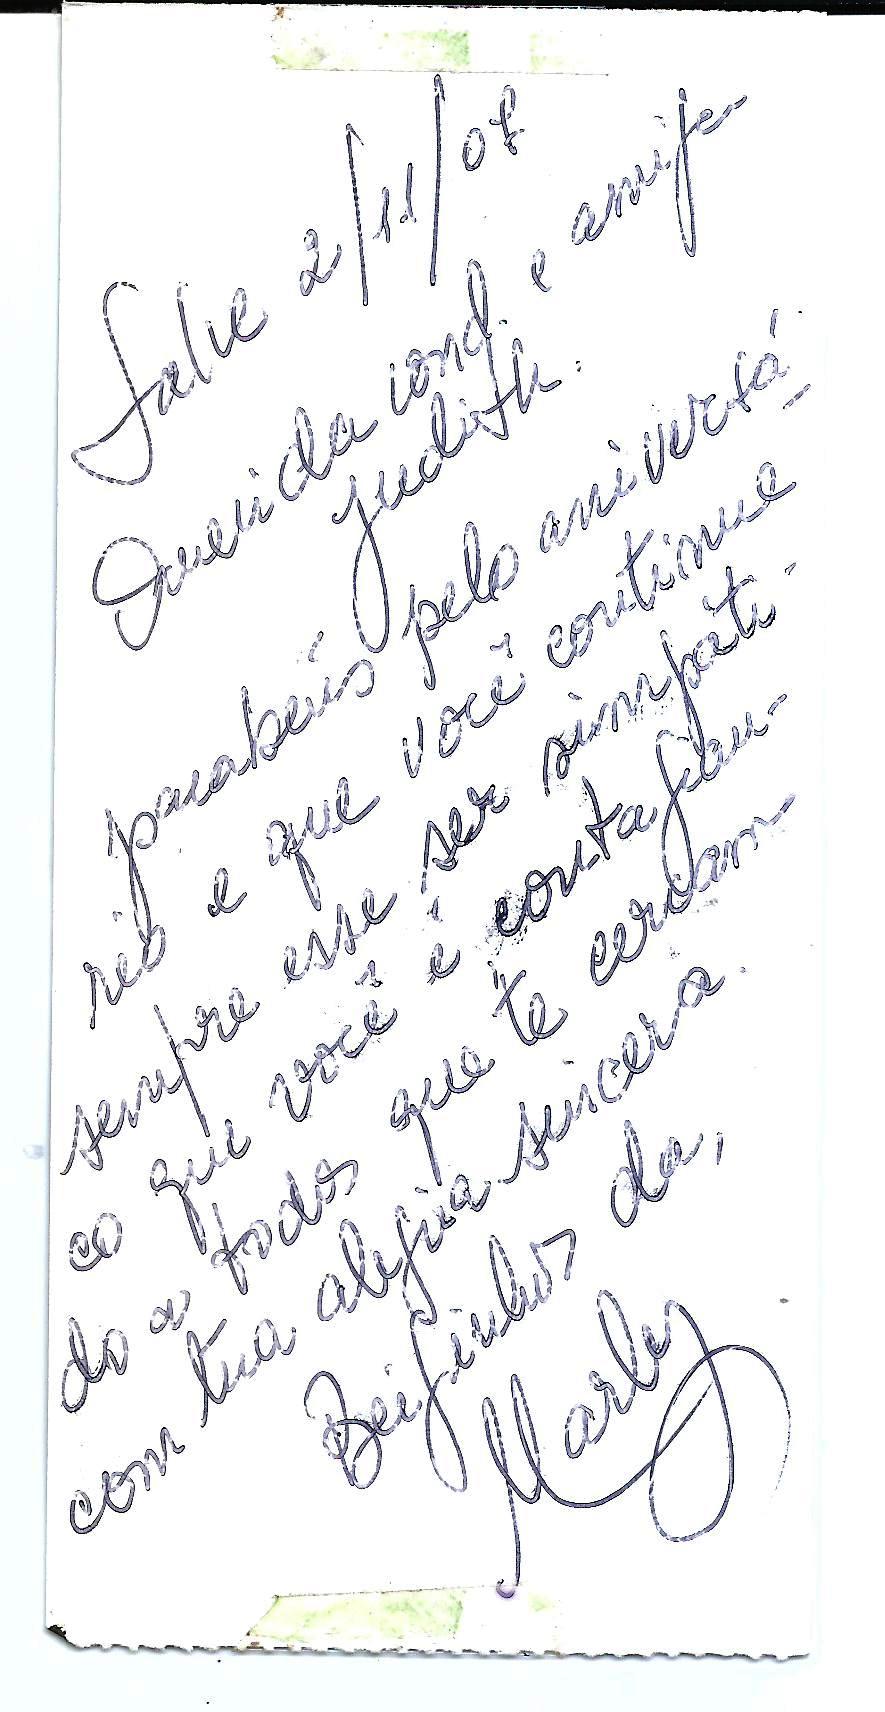 Salve 2/11/07
Querida cond. e amiga
Judith.
parabéns pelo aniversá-
rio e que você continue
sempre esse ser simpáti-
co que você é contagian-
do a todos que te cercam
com tua alegria sincera.
Beijinhos da,
Marly